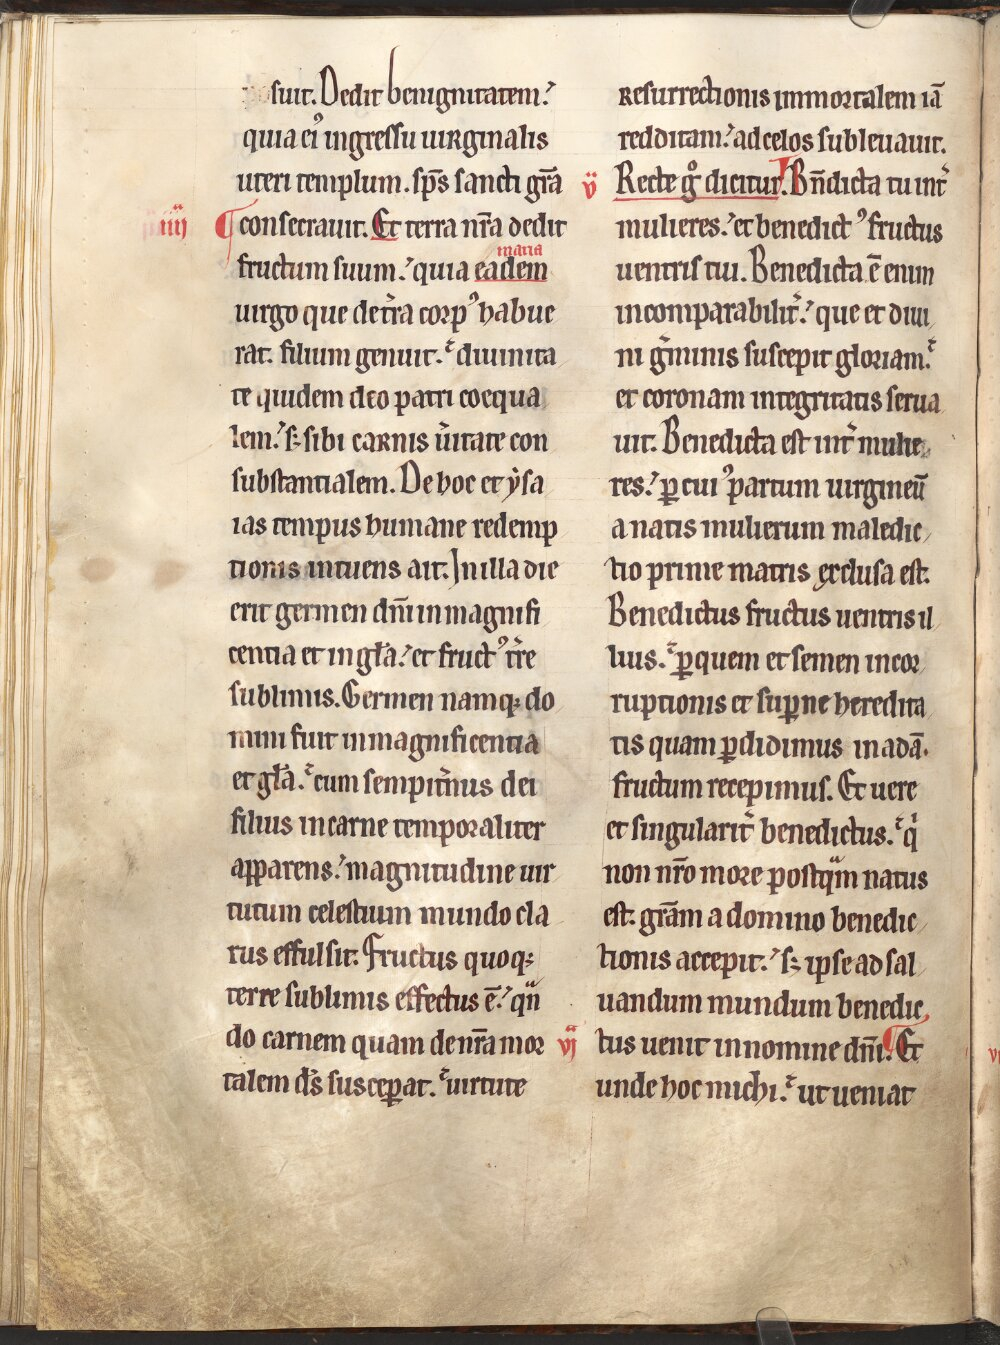 suit. Dedit benignitatem.
quia ei᾽ ingressu uirginalis
uteri templum. sp̄s sancti gr̄a
iiii consecrauit. Et terra nr̄a dedit
maria
fructum suum. quia eadem
uirgo que de tr̄a corp᾽ habue
rat. filium genuit. diuinita
te quidem deo patri coequa
lem. sꝫ sibi carnis ūitate con
substantialem. De hoc et ẏsa
ias tempus humane redemp
tionis intuens ait. Jn illa die
erit germen dn̄i in magnifi
centia et in gl̄a. et fruct᾽ tr̄e
sublimis. Germen namqꝫ do
mini fuit in magnificentia
et gl̄a. cum sempit̄nus dei
filius in carne temporaliter
apparens. magnitudine uir
tutum celestium mundo cla
rus effulsit. Fructus quoqꝫ
terre sublimis effectus ē. qn̄
do carnem quam de nr̄a mor
talem d̄s susceꝑat. uirtute
resurrectionis immortalem iā
redditam. ad celos subleuauit.
v Recte gͦ dicitur. Bn̄dicta tu int̄
mulieres. et benedict᾽ fructus
uentris tui. Benedicta ē enim
incomparabilit̄. que et diui
ni ḡminis suscepit gloriam.
et coronam integritatis serua
uit. Benedicta est int̄ mulie
res. ꝑ cui᾽ partum uirgineū
a natis mulierum maledic
tio prime matris exclusa est.
Benedictus fructus uentris il
lius. ꝑ quem et semen incor
ruptionis et suꝑne heredita
tis quam ꝑdidimus in adā.
fructum recepimus. Et uere
et singularit̄ benedictus. qͥ
non nr̄o more postqᵃm natus
est. gr̄am a domino benedic
tionis accepit. sꝫ ipse ad sal
uandum mundum benedic
vj tus uenit in nomine dn̄i. Et
unde hoc michi. ut ueniat